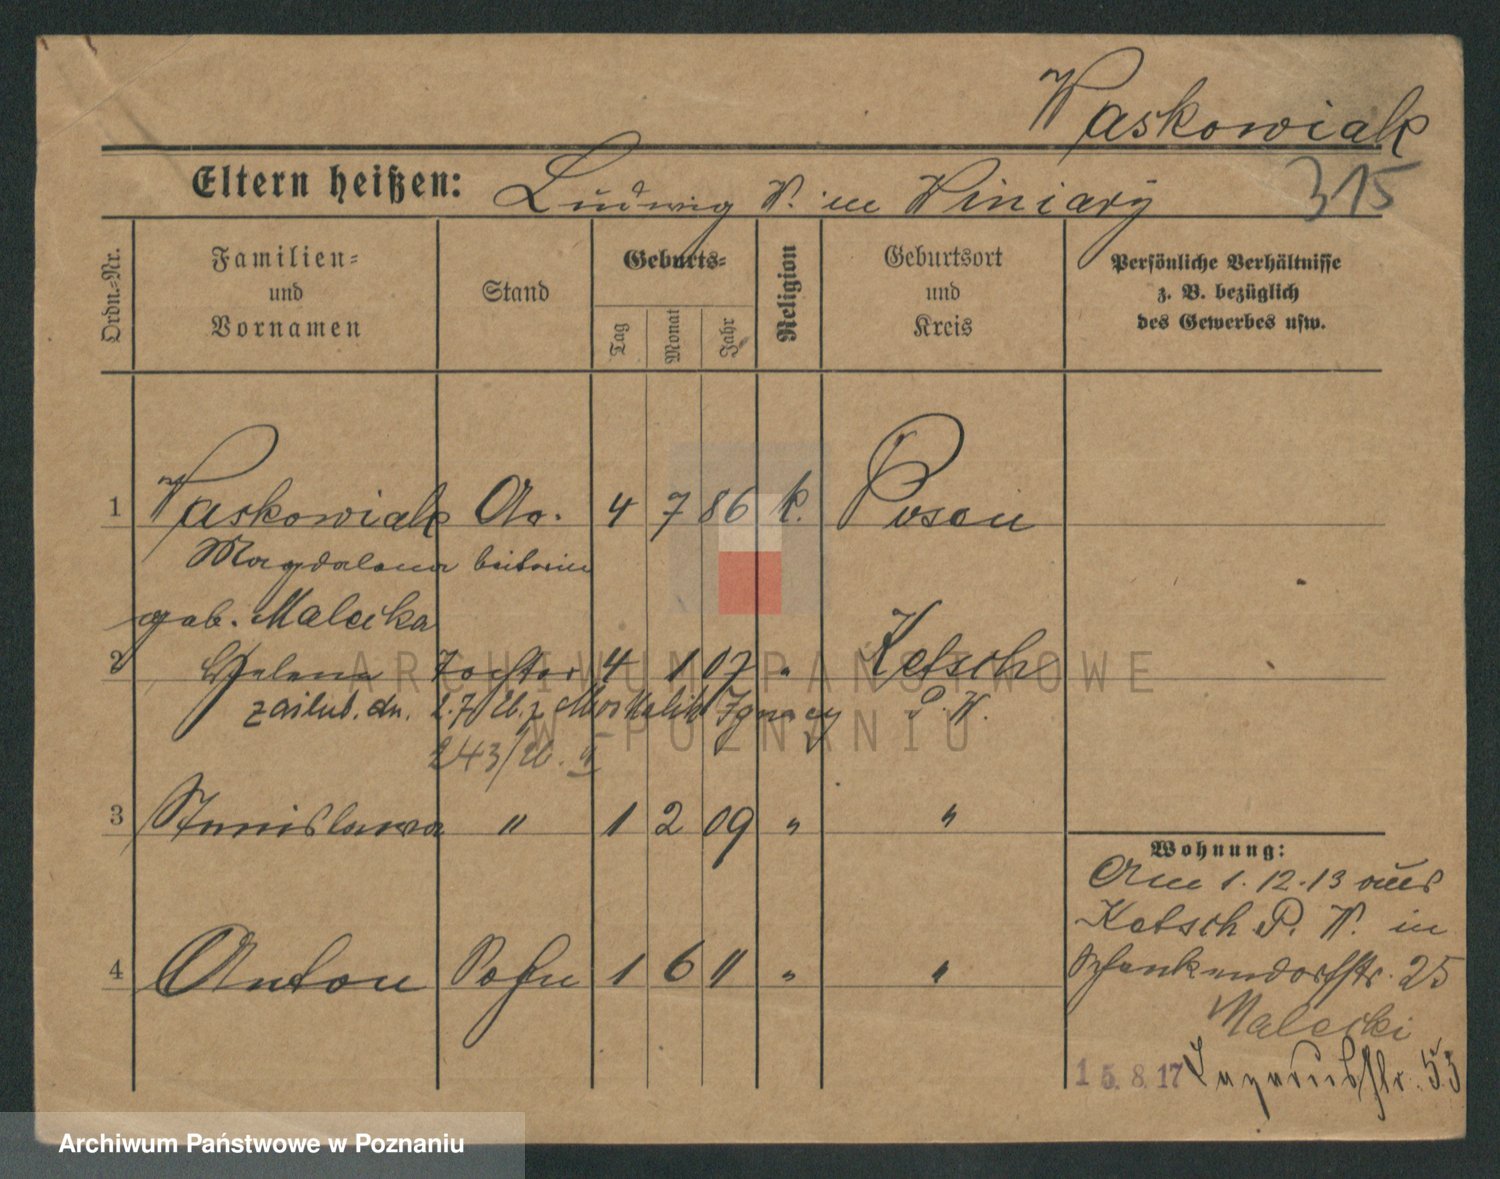 Waskowiak
Eltern heißen: Ludwig W. in Winiary 315
Ordn.=Nr.
Familien=
und
Vornamen
Stand
Geburts=
Tag
Monat
Jahr
Religion
Geburtsort
und
Kreis
Persönliche Verhältnisse
z. B. bezüglich
des Gewerbes usw.
1 Waskowiak Ar= 4 7 86 k. Posen
Magdalena beiterin
geb. Malecka
2 Helena Tochter 4 1 07 " Ketsch
zaślub. dn. 2.7/26. z Moskalik Ignacy P. W.
243/26.
3 Stanislawa " 1 2 09 " "
4 Anton Sohn 1 6 11 " "
Wohnung:
Am 1.12.13 aus
Ketsch P. W. in
Schenkendorfstr. 25
Malecki
15.8.17 Lazarusstr. 53
ARCHIWUM PAŃSTWOWE
W POZNANIU
Archiwum Państwowe w Poznaniu